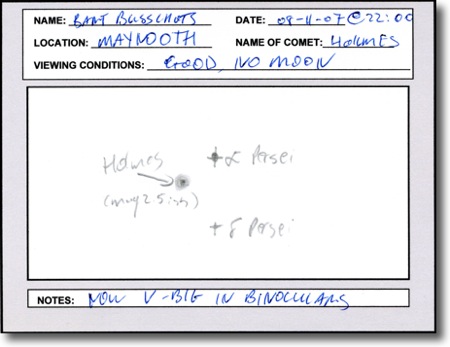 NAME: BART BUSSCHOTS DATE: 08-11-07 @ 22:00
LOCATION: MAYNOOTH NAME OF COMET: HOLMES
VIEWING CONDITIONS: GOOD, NO MOON
Holmes
α Persei
(mag 2.5ish)
δ Persei
NOTES: NOW V-BIG IN BINOCULARS